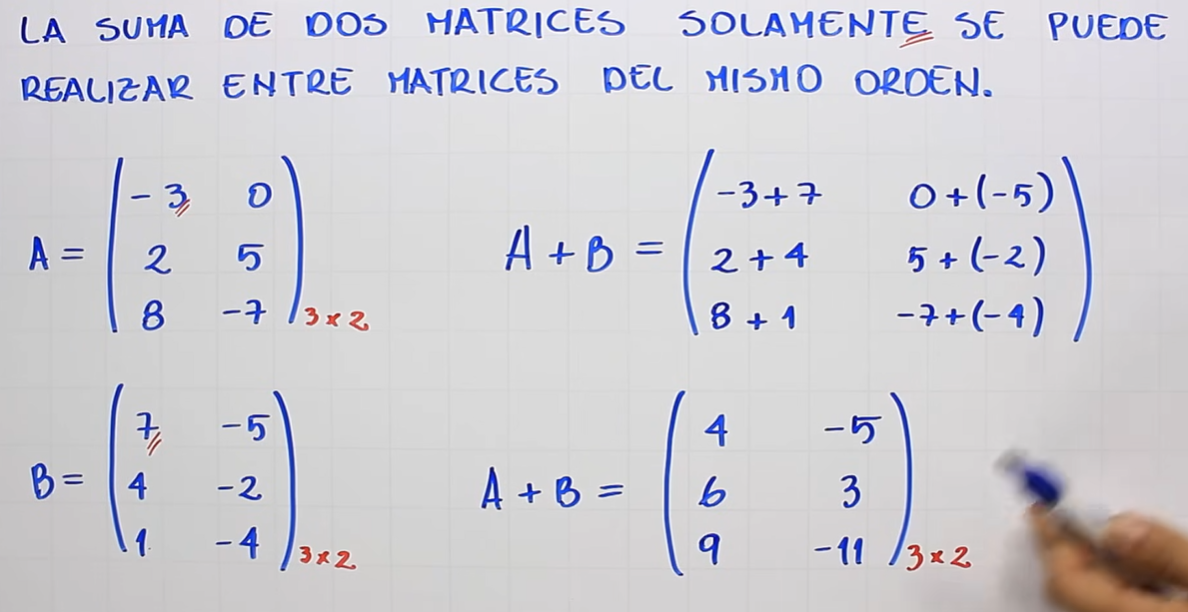 LA SUMA DE DOS MATRICES SOLAMENTE SE PUEDE
REALIZAR ENTRE MATRICES DEL MISMO ORDEN.
-3 0
A = 2 5
8 -7 3x2
-3+7 0+(-5)
A + B = 2 + 4 5 + (-2)
8 + 1 -7+(-4)
7 -5
B = 4 -2
1 -4 3x2
4 -5
A + B = 6 3
9 -11 3x2